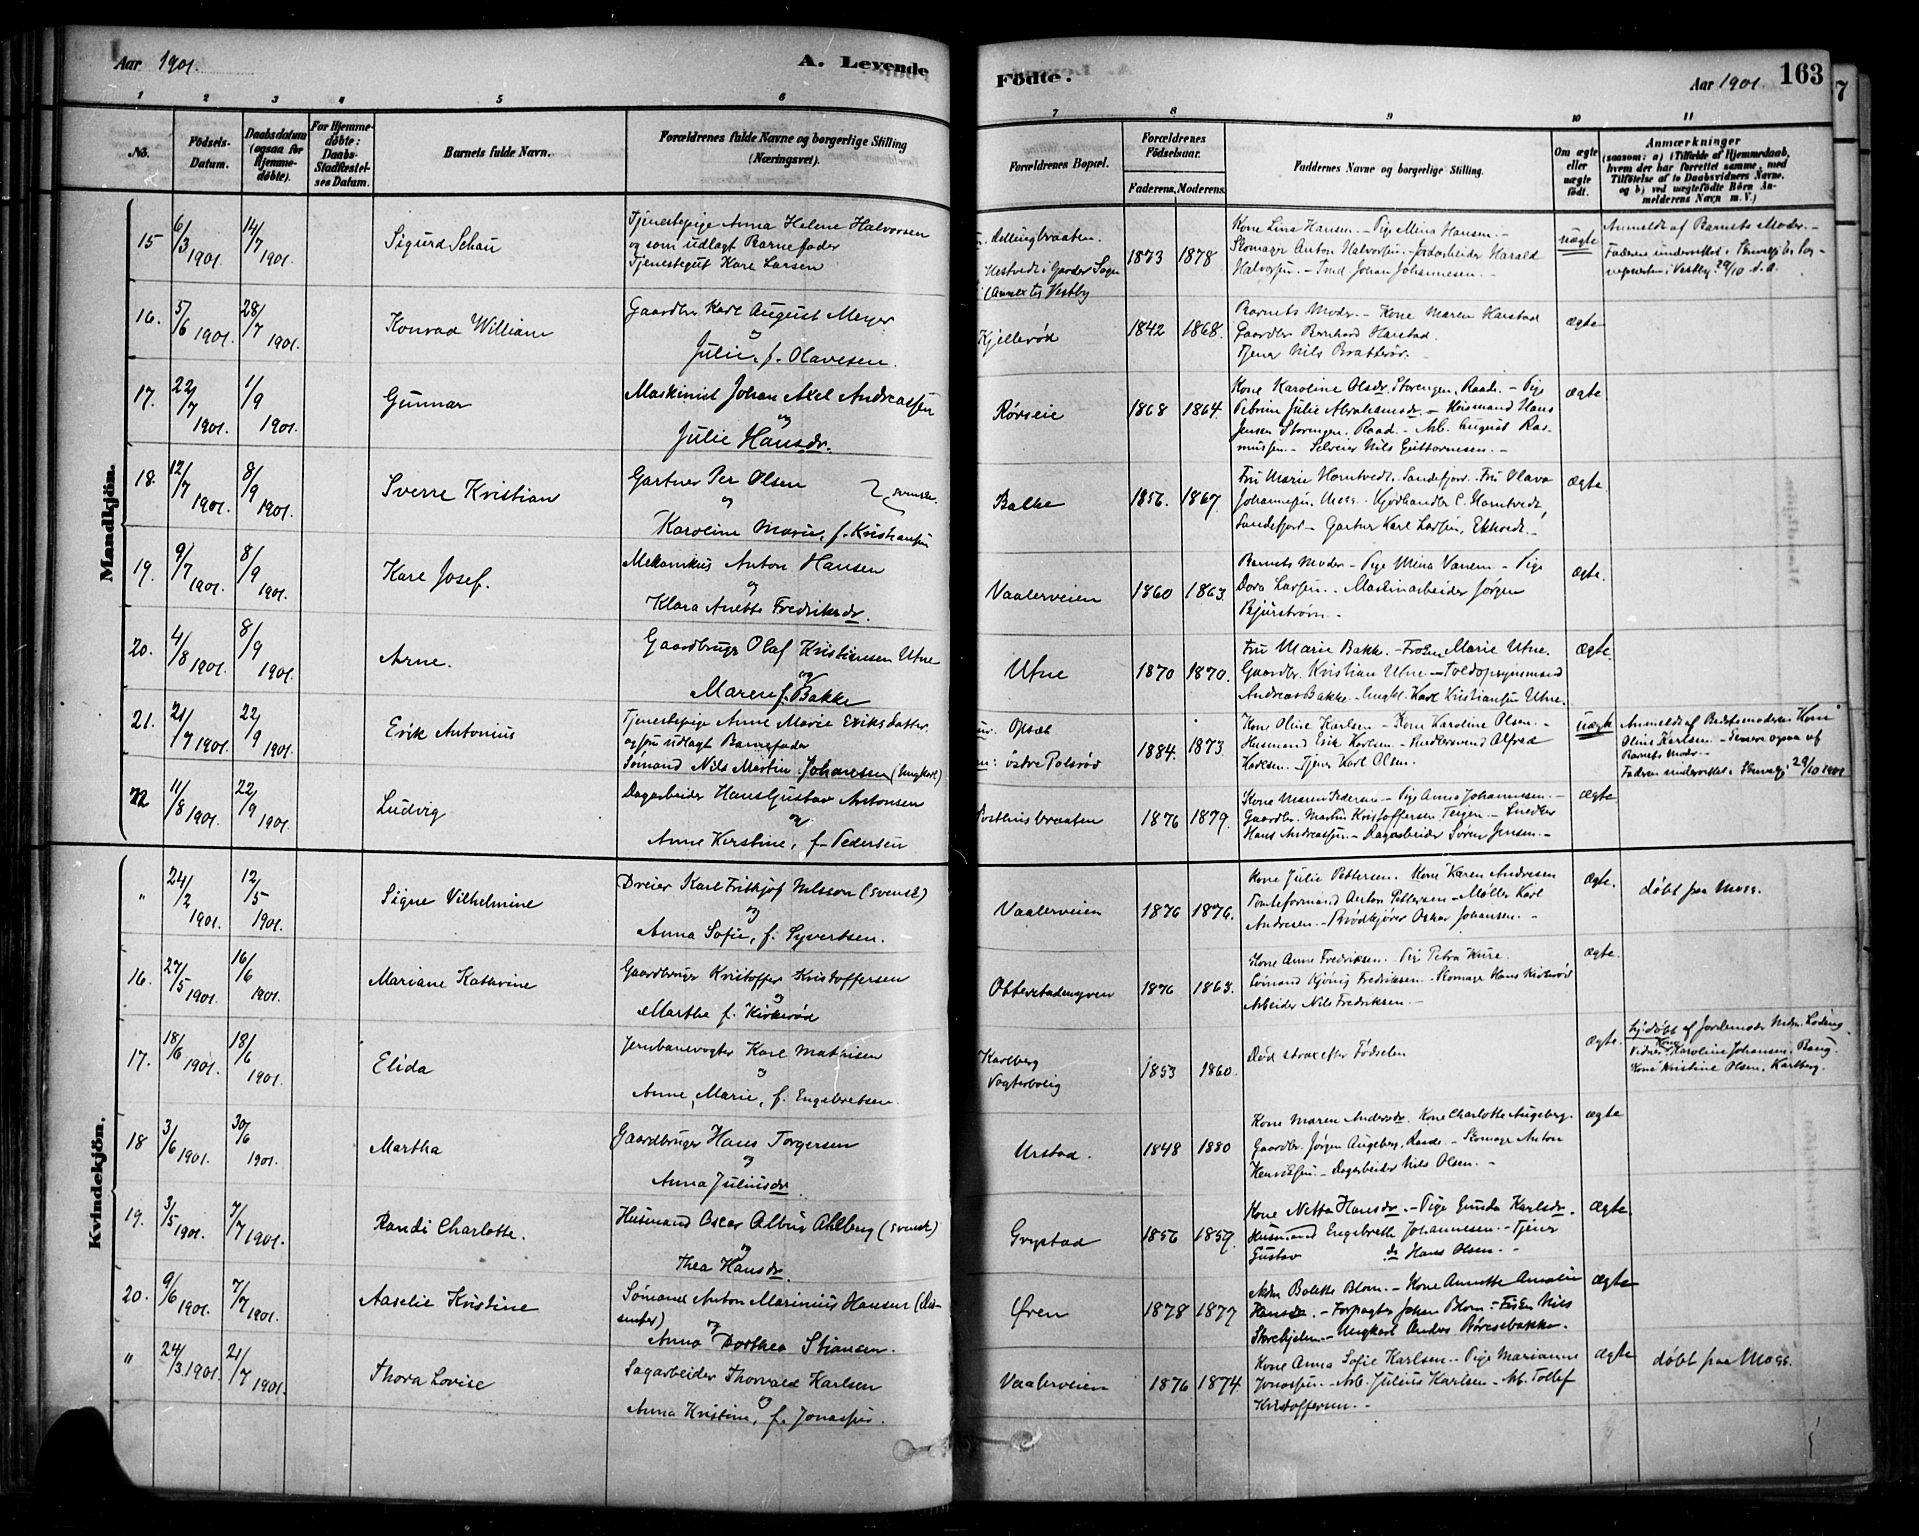 Aar 1901. A. Levende Födte. Aar 1901. 163
1 2 3 4 5 6 7 8 9 10 11
No. Födsels-Datum. Daabsdatum (ogsaa for Hjemmedöbte). For Hjemmedöbte: Daabs-Stadfæstelses Datum. Barnets fulde Navn. Forældrenes fulde Navne og borgerlige Stilling (Næringsvei). Forældrenes Bopæl. Forældrenes Födselsaar. Faderens. Moderens. Faddernes Navne og borgerlige Stilling. Om ægte eller uægte födt. Anmærkninger (saasom: a) i Tilfælde af Hjemmedaab, hvem der har forrettet samme, med Tilföielse af to Daabsvidners Navne, og b) ved uægtefödte Börn Anmelderens Navn m. V.)
Mandkjön.
15 6/3 1901. 14/7 1901. Sigurd Schau
Tjenestepige Anna Helene Halvorsen
og som udlagt Barnefader
Tjenestegut Karl Larsen
Hestvedt i Garder Sogn
(Annex til Vestby
1873 1878
Kone Lina Hansen. - Pige Mina Hansen. -
Skomager Anton Halvorsen. - Jordarbeider Harald
Halvorsen. - Johan Johannesen. -
uægte
Anmeldt af Barnets Moder. -
16. 5/6 1901. 28/7 1901. Konrad William
Gaardbr. Karl August Meyer
og
Julie, f. Olavesen.
Kjellerød 1842 1868.
Barnets Moder. - Kone Maren Harestad
Gaardbr. Bernhard Harestad.
Tjener Nils Bratterør. -
ægte
17. 22/7 1901. 1/9 1901. Gunnar
Maskinist Johan Axel Andreassen
og
Julie Hansdr.
Rørseie 1868 1864.
Kone Karoline Olsdr. Storengen, Raade. - Pige
Petrine Julie Abrahamsdr. - Husmand Hans
Jensen Storengen, Raad. - Arb. August Ras-
mussen. - Selveier Nils Guttormsen. -
ægte
18. 12/7 1901. 8/9 1901. Sverre Kristian
Gartner Per Olsen } svensk.
og
Karoline Marie, f. Kristiansen
Balke 1856. 1867.
Fru Marie Horntvedt, Sandefjord. Fru Olava
Johannesen, Moss. Kjødhandler C. Horntvedt,
Sandefjord. - Gartner Karl Larsen, Ekholt. -
ægte.
19. 9/7 1901. 8/9 1901. Karl Josef.
Mekanikus Anton Hansen
og
Klara Anette Fredriksdr.
Vaalerveien 1860 1863.
Barnets Moder - Pige Mina Vanem. - Pige
Dora Larsen. - Maskinarbeider Jørgen
Bjurstrøm. -
ægte.
20. 4/8 1901. 8/9 1901. Arne.
Gaardbruger Olaf Kristiansen Utne
og
Maren f. Bakke
Utne 1870 1870.
Fru Marie Bakke. - Frøken Marie Utne.
Gaardbr. Kristian Utne. - Toldopsynsmand
Andreas Bakke. - Ungkl. Karl Kristiansen Utne.
ægte.
21. 21/7 1901. 22/9 1901. Erik Antonius
Tjenestepige Anne Marie Eriksdatter
og som udlagt Barnefader
Sømand Nils Martin Johansen (Ungkarl)
Opsæt
østre Polsrød
1884. 1873
Kone Oline Karlsen. - Kone Karoline Olsen. -
Husmand Erik Karlsen. - Alfred
Karlsen. Tjener Karl Olsen. -
uægte
Anmeldt af Bedstemoderen Kone
Oline Karlsen. - Senere ogsaa af
Barnets Moder. -
22 11/8 1901. 22/9 1901. Ludvig
Dagarbeider Hans Gustav Antonsen
og
Anne Kirstine, f. Pedersen
1876 1879.
Kone Maren Pedersen. - Pige Anna Johannesen. -
Gaardbr. Martin Kristoffersen Teigen. - Snedker
Hans Andreassen. - Dagarbeider Søren Jensen. -
ægte
Kvindekjön.
" 24/2 1901. 12/5 1901. Signe Vilhelmine
Dreier Karl Frithjof Nilsson (svensk)
og
Anna Sofie, f. Syvertsen.
Vaalerveien 1876 1876.
Kone Julie Pettersen. Kone Karen Andresen
Tomteformand Anton Pettersen. - Møller Karl
Andresen. - Brødkjører Oskar Johansen. -
ægte.
døbt paa Moss.
16. 27/5 1901. 16/6 1901. Mariane Kathrine
Gaardbruger Kristoffer Kristoffersen
og
Marthe f. Kirkerød
1876 1863.
Kone Anne Fredriksen. - Pige Petra Kure.
Sømand Fredriksen. - Skomager Hans Kirkerød
Arbeider Nils Fredriksen. -
ægte.
17. 18/6 1901. 18/6 1901. Elida
Jernbanevogter Karl Mathisen
og
Anne Marie, f. Engebretsen.
Karlberg
Vogterbolig
1853 1860.
Død strax efter Fødselen
ægte.
Hj.døbt af Jordemoder
Vidner: Kone Karoline Johansen,
Kone Kristine Olsen, Karlberg.
18 3/6 1901. 30/6 1901. Martha
Gaardbruger Hans Torgersen
og
Anna Juliusdr.
Urstad. 1848 1880
Kone Maren Andersdr. Kone Charlotte Augeberg.
Gaardbr. Jørgen Augeberg, Raade. - Skomager Anton
Henriksen. - Dagarbeider Nils Olsen. -
ægte
19. 3/5 1901. 7/7 1901. Randi Charlotte.
Husmand Oscar Albin Ahlberg (svensk)
og
Thea Hansdr.
Grystad 1856 1859.
Kone Netta Hansdr. - Pige Gunda Karlsdr. -
Husmand Engebreth Johannesen. - Tjener
Gustav do Hans Olsen. -
ægte
20. 9/6 1901. 7/7 1901. Aaselie Kristine
Sømand Anton Marinius Hansen (Dis-
senter)
og
Anna Dorthea Stiansen.
Øren 1878 1877
Mdm. Bolette Blom. - Kone Annette Amalie
Hansdr. - Forpagter Johan Blom. - Nils
Storehjelen. - Ungkarl Anders Børresebakke.
ægte
" 24/3 1901. 21/7 1901. Thora Lovise
Sagarbeider Thorvald Karlsen
og
Anna Kristine, f. Jonassen.
Vaalerveien 1876 1874.
Kone Anna Sofie Karlsen. - Pige Marianne
Jonassen. - Arb. Julius Karlsen. - Arb. Tollef
Kristoffersen. -
ægte
døbt paa Moss.